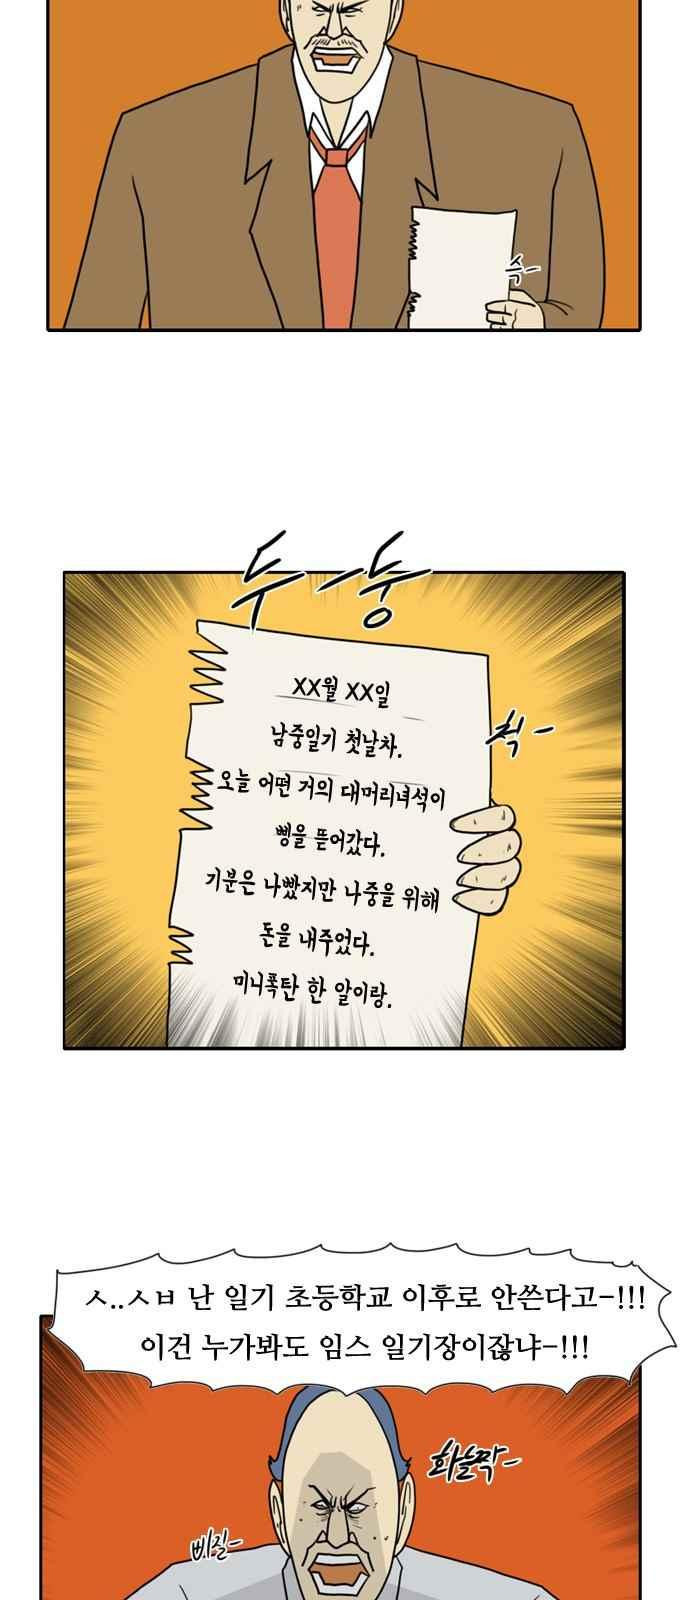 슥-
두-둥
XX월 XX일
남중일기 첫날차.
오늘 어떤 거의 대머리녀석이
삥을 뜯어갔다.
기분은 나빴지만 나중을 위해
돈을 내주었다.
미니폭탄 한 알이랑.
척-
ㅅ..ㅅㅂ 난 일기 초등학교 이후로 안쓴다고-!!!
이건 누가봐도 임스 일기장이잖냐-!!!
화늘짝-
삐질-